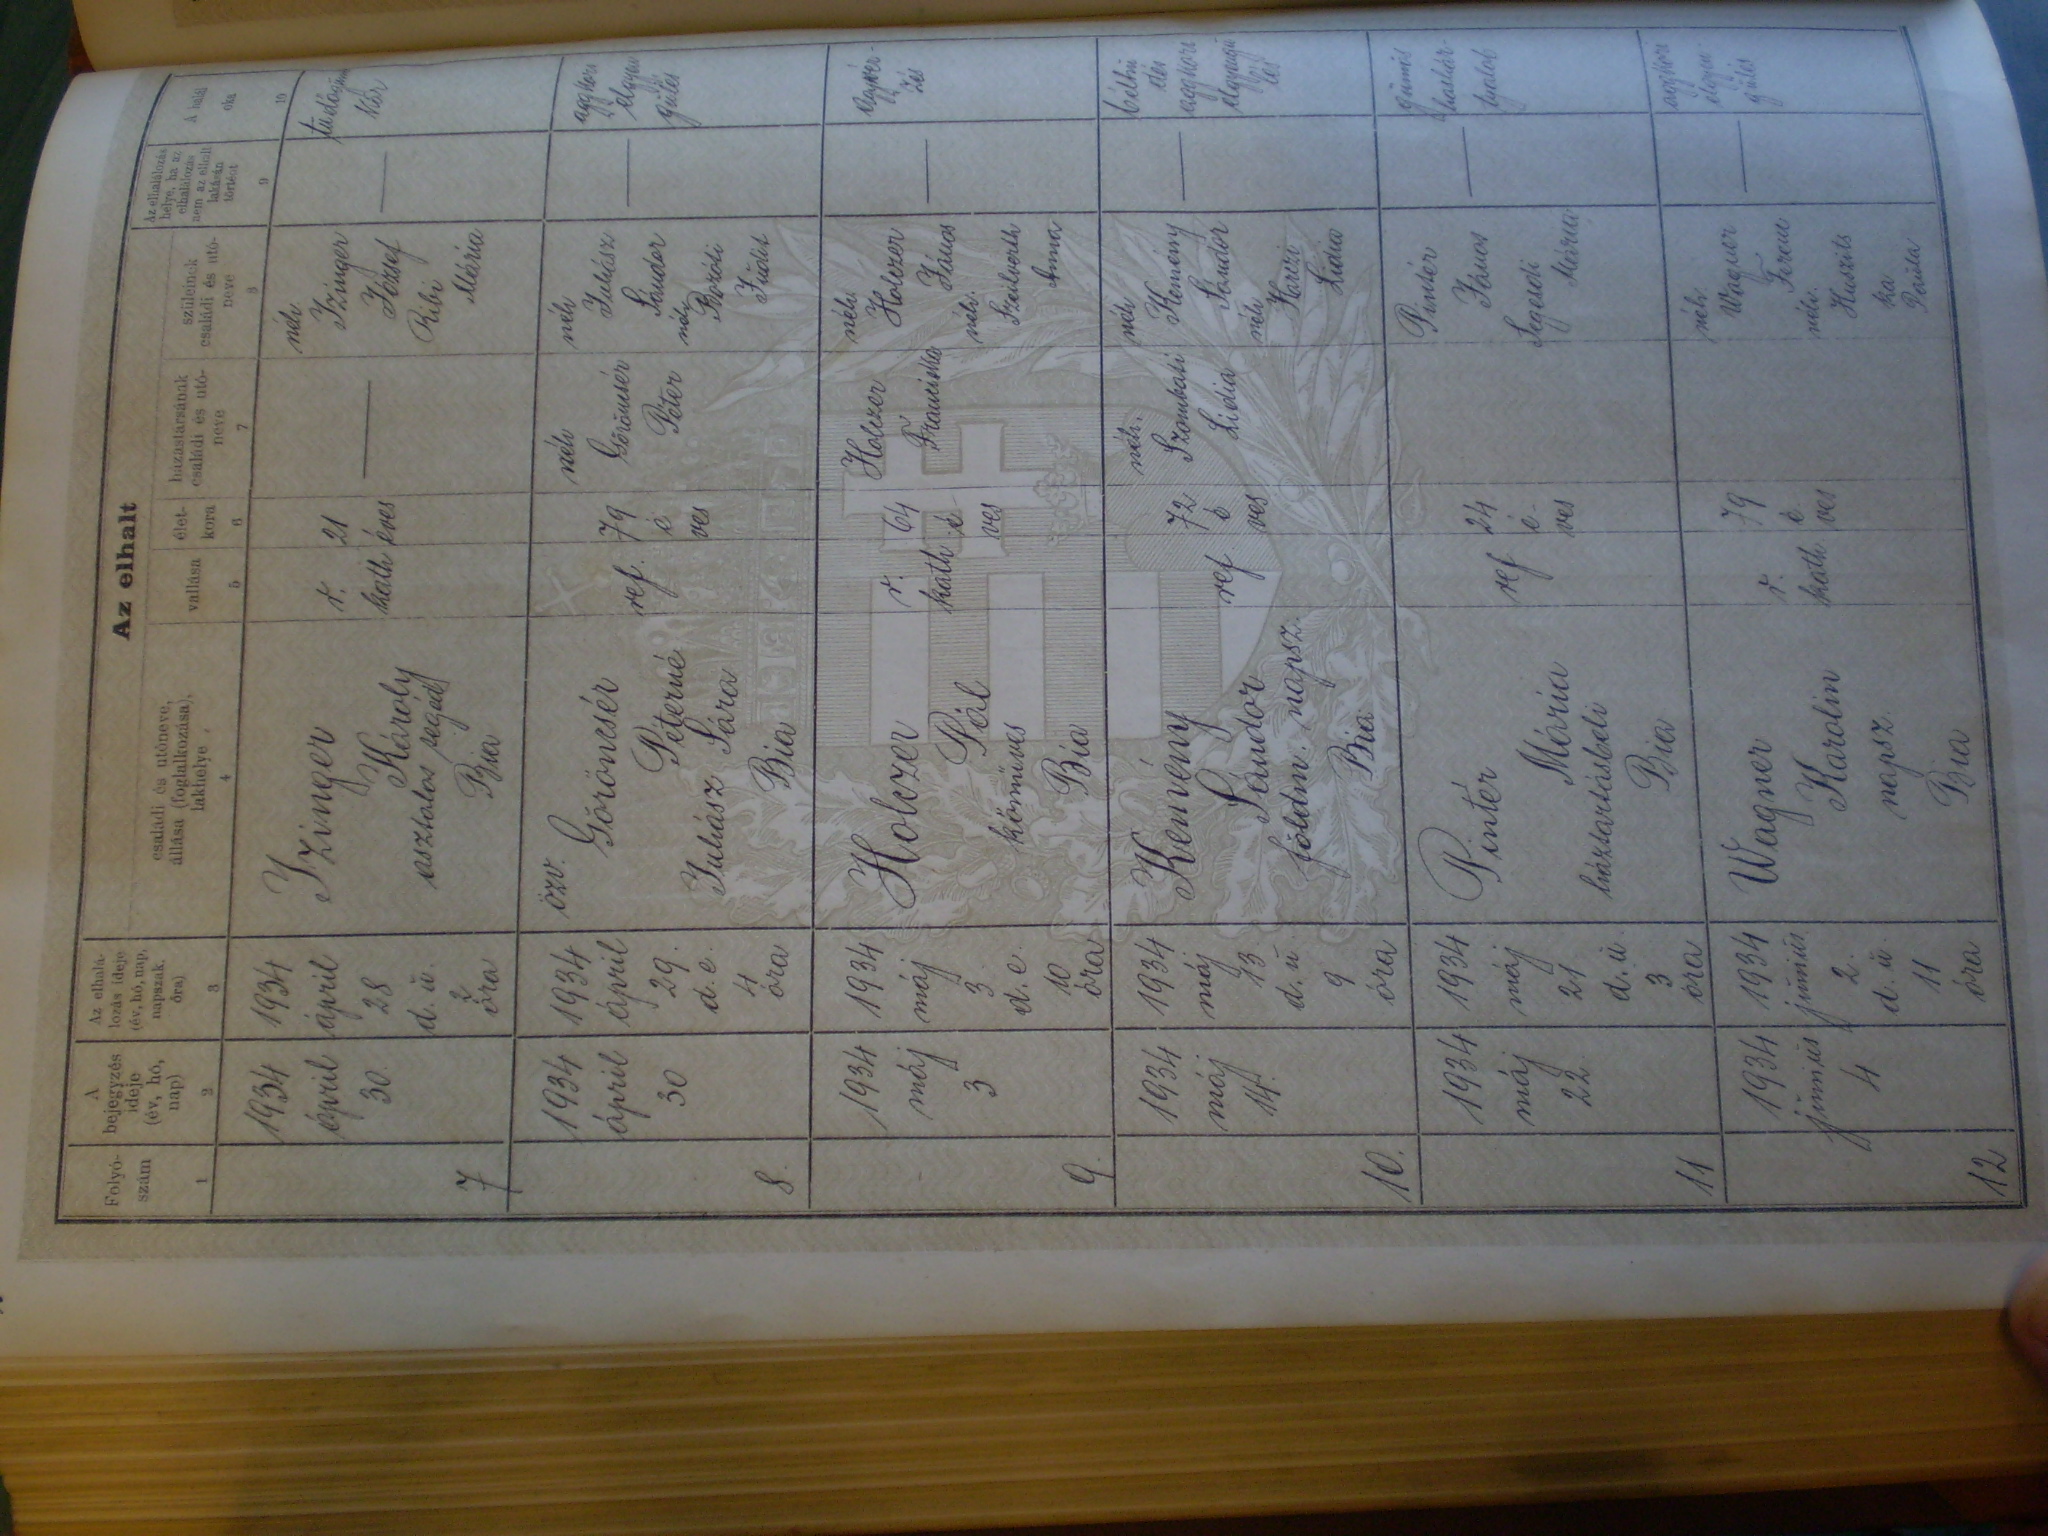 Az elhalt
Folyó-
szám
A
bejegyzés
ideje
(év, hó,
nap)
Az elhalá-
lozás ideje
(év, hó, nap,
napszak,
óra)
családi és utóneve,
állása (foglalkozása),
lakhelye
vallása
élet-
kora
házastársának
családi és utó-
neve
szüleinek
családi és utó-
neve
Az elhalálozás
helye, ha az
elhalálozás
nem az elhalt
lakásán
történt
A halál
oka
1
2
3
4
5
6
7
8
9
10
7
1934
április
30.
1934
április
28
d. u.
2
óra
Izinger
Károly
asztalos segéd
Bia
r.
kath
21
éves
néh
Izinger
József
Ribi
Mária
kór
8.
1934
április
30
1934
április
29.
d. e.
4
óra
özv.
Göröncsér
Péterné
Juhász Sára
Bia
ref.
79
é
ves
néh
Göröncsér
Péter
néh
Juhász
Sándor
néh
Judit
aggkori
elgyen
gülés
9.
1934
máj
3
1934
máj
3
d. e.
10
óra
Holczer
Pál
kőmüves
Bia
r.
kath
64
é
ves
Holczer
Franciska
néh
Holczer
János
néh.
Anna
10.
1934
máj
14.
1934
máj
13.
d. u
9
óra
Kemény
Sándor
földm. napsz.
Bia
ref
72
é
ves
néh.
Szombati
Lidia
néh
Kemény
Sándor
néh
Lidia
aggkori
11
1934
máj
22
1934
máj
21.
d. u.
3
óra
Pintér
Mária
háztartásbeli
Bia
ref
24
é-
ves
Pintér
János
Segesdi
Mária
12
1934
június
4
1934
június
2.
d. u.
11
óra
Wagner
Karolin
napsz.
Bia
r.
kath
79
é
ves
néh
Wagner
Ferenc
néh.
aggkori
elgyen
gülés